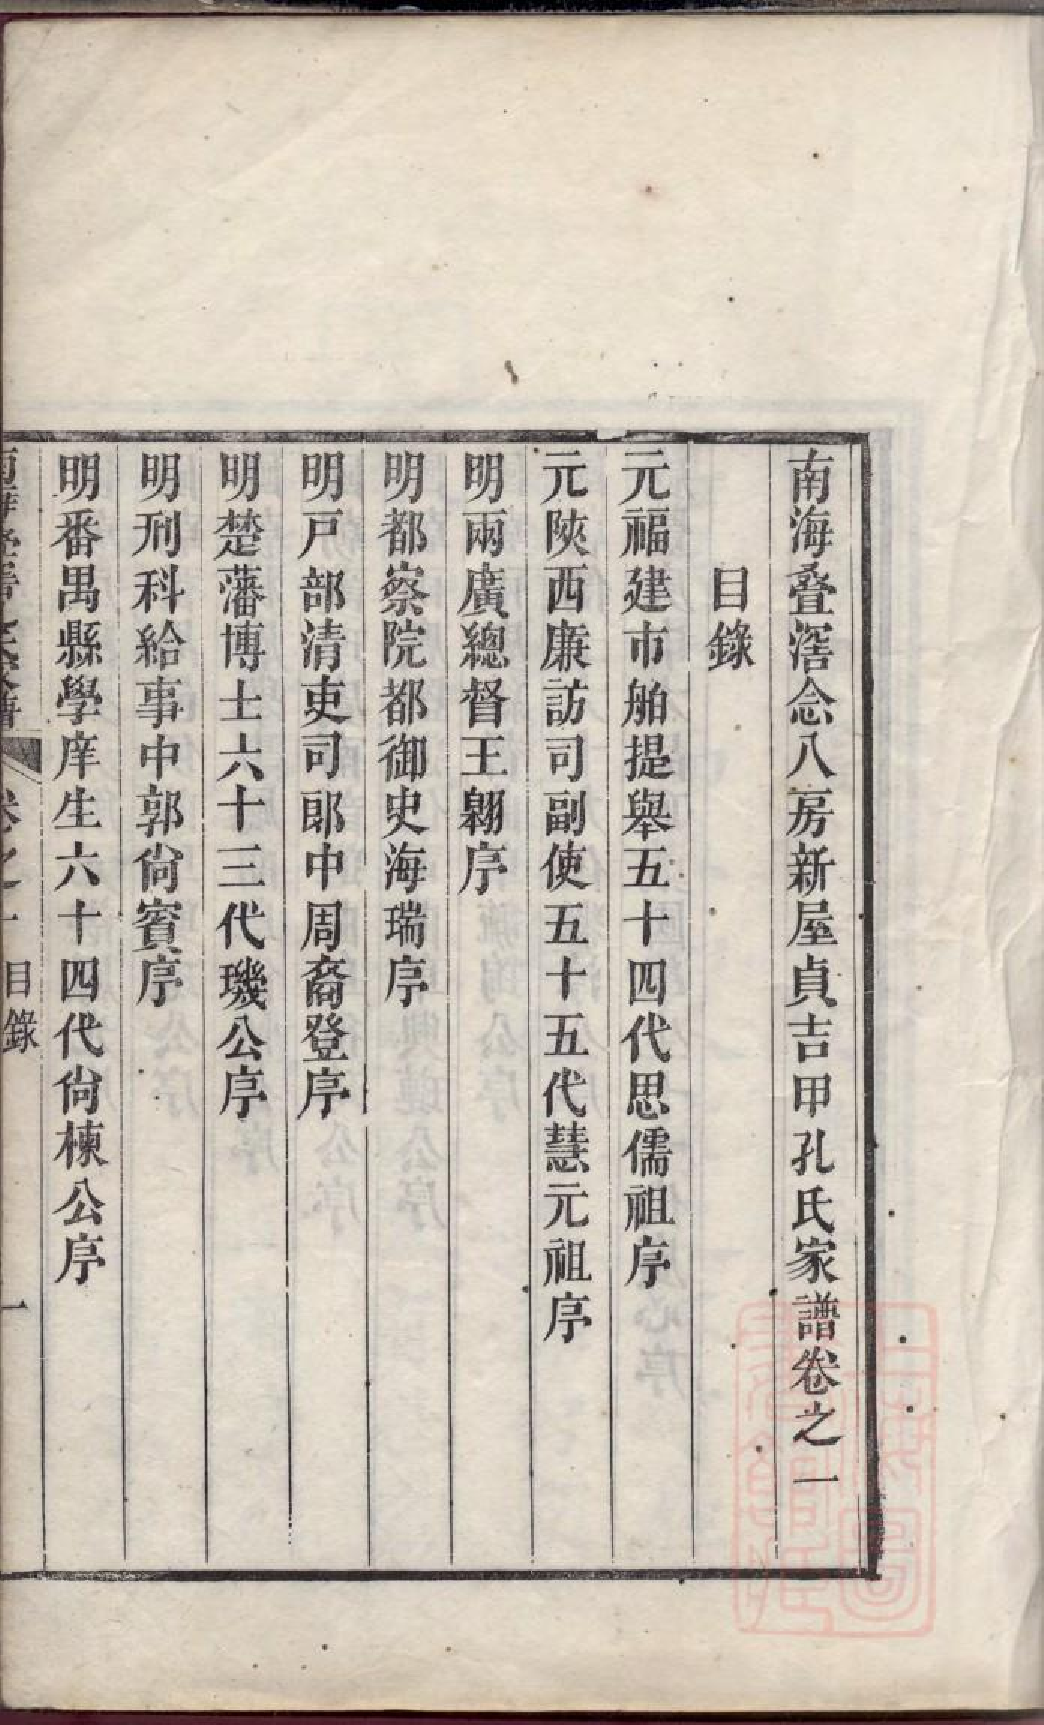 南海叠滘念八房新屋貞吉甲孔氏家譜卷之一
目錄
元福建市舶提舉五十四代思儒祖序
元陝西廉訪司副使五十五代慧元祖序
明兩廣總督王翱序
明都察院都御史海瑞序
明戸部清吏司郎中周裔登序
明楚藩博士六十三代璣公序
明刑科給事中郭尙賓序
明番禺縣學庠生六十四代尙楝公序
卷之一 目錄 一